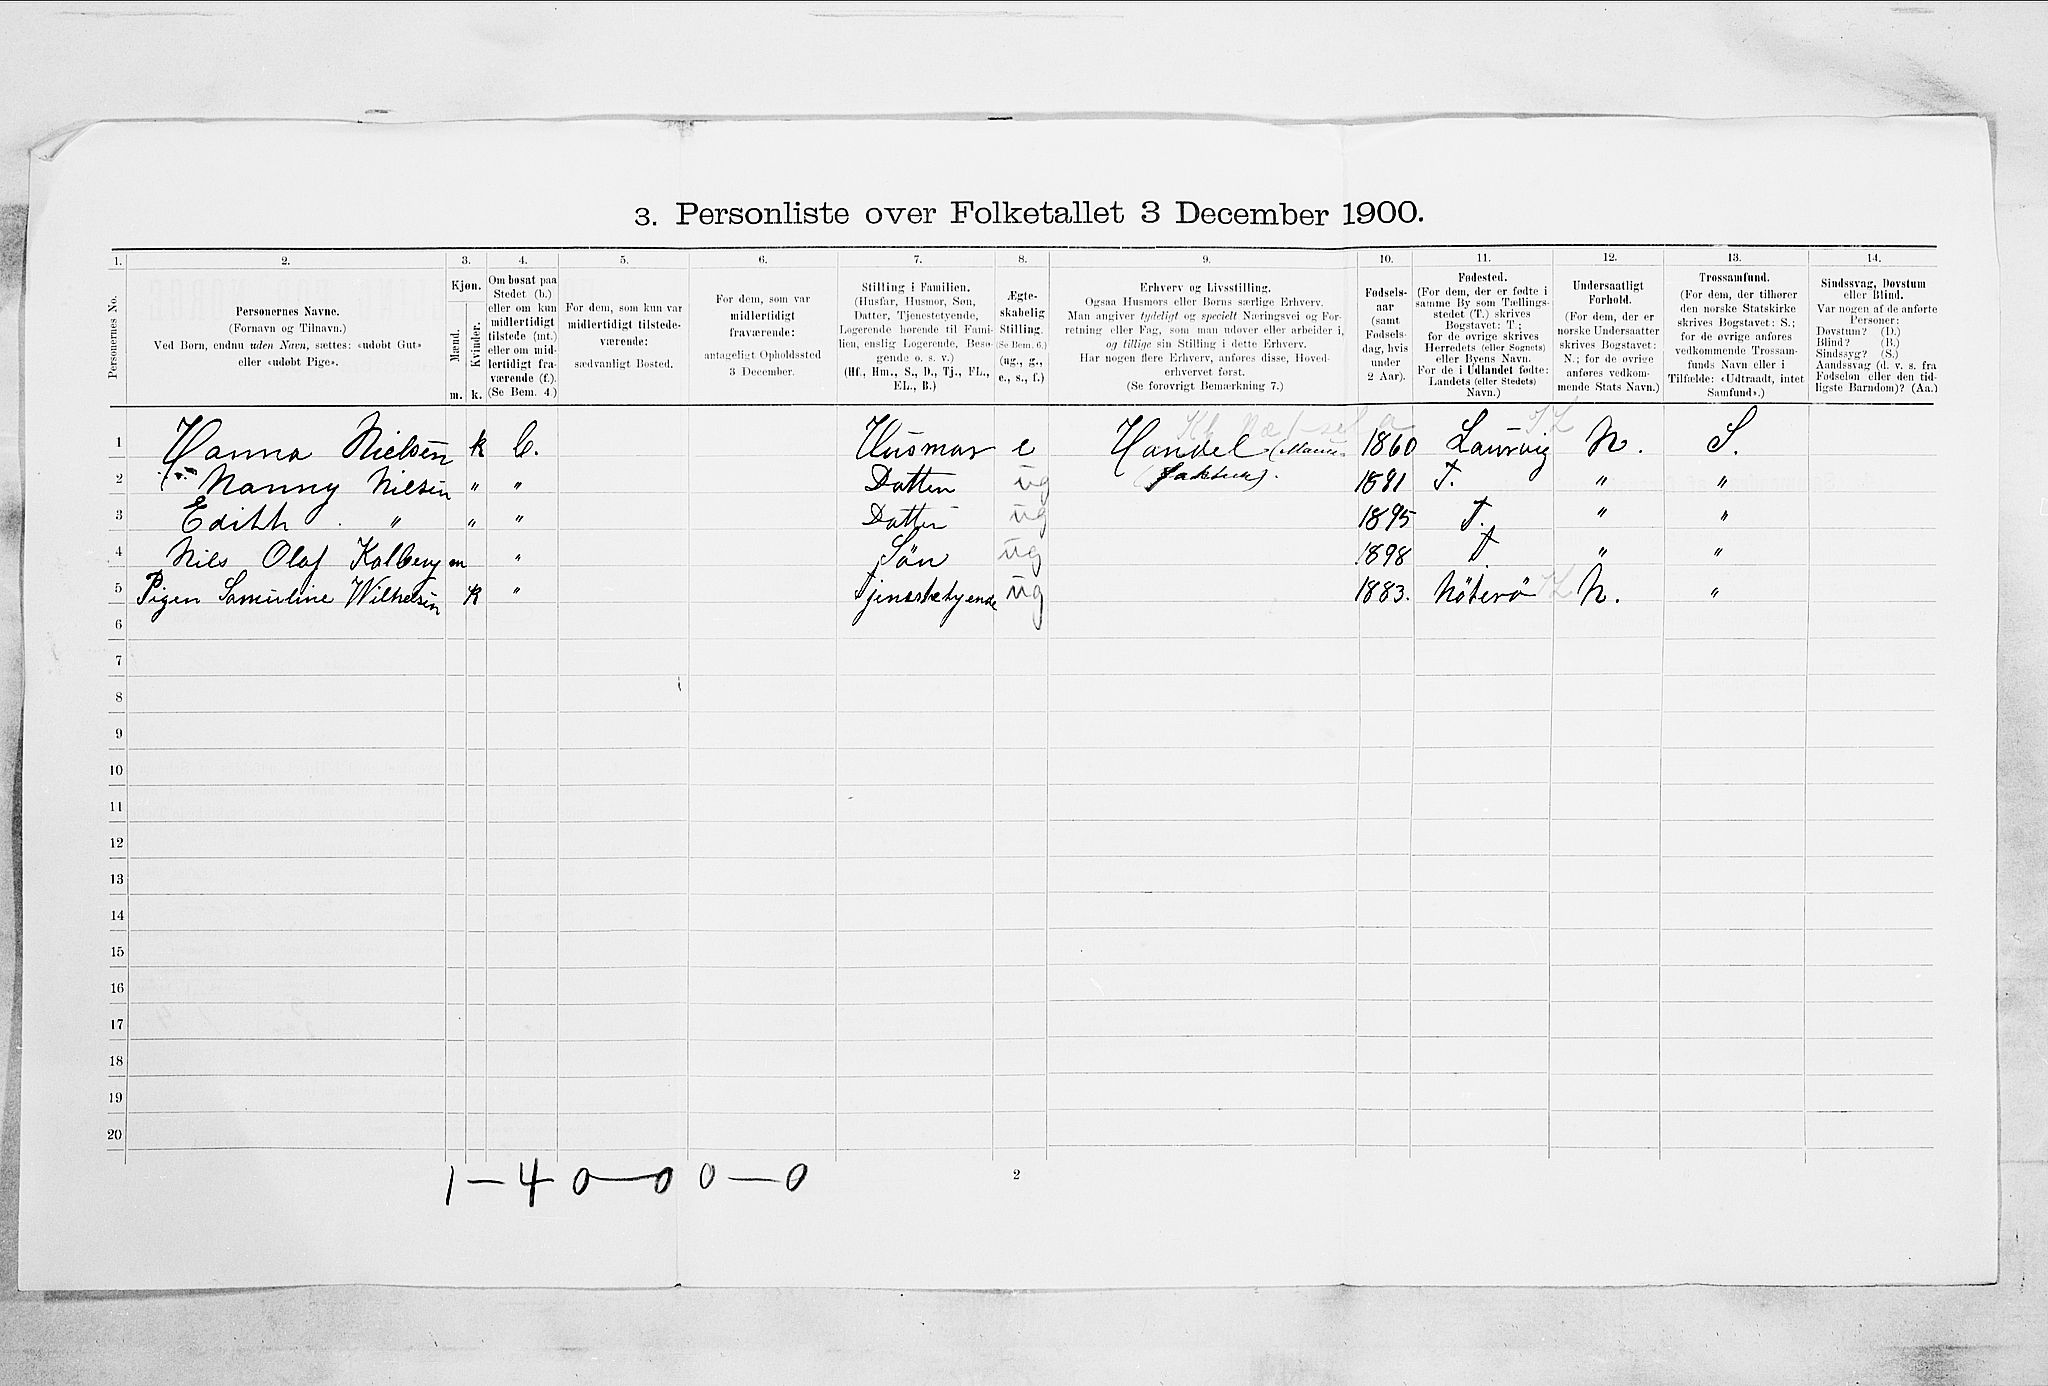 3. Personliste over Folketallet 3 December 1900.
1. 2. 3. 4. 5. 6. 7. 8. 9. 10. 11. 12. 13. 14.
Personernes No.
Personernes Navne.
(Fornavn og Tilnavn.)
Ved Børn, endnu uden Navn, sættes: «udøbt Gut»
eller «udøbt Pige».
Kjøn.
Mænd.
Kvinder.
m. k.
Om bosat paa
Stedet (b.)
eller om kun
midlertidigt
tilstede (mt.)
eller om mid-
lertidigt fra-
værende (f.).
(Se Bem. 4.)
For dem, som kun var
midlertidigt tilstede-
værende:
sædvanligt Bosted.
For dem, som var
midlertidigt
fraværende:
antageligt Opholdssted
3 December.
Stilling i Familien.
(Husfar, Husmor, Søn,
Datter, Tjenestetyende,
Logerende hørende til Fami-
lien, enslig Logerende, Besø-
gende o. s. v.)
(Hf., Hm., S., D., Tj., FL.,
EL., B.)
Ægte-
skabelig
Stilling.
(Se Bem. 6.)
(ug., g.,
e., s., f.)
Erhverv og Livsstilling.
Ogsaa Husmors eller Børns særlige Erhverv.
Man angiver tydeligt og specielt Næringsvei og For-
retning eller Fag, som man udøver eller arbeider i,
og tillige sin Stilling i dette Erhverv.
Har nogen flere Erhverv, anføres disse, Hoved-
erhvervet først.
(Se forøvrigt Bemærkning 7.)
Fødsels-
aar
(samt
Fødsels-
dag, hvis
under
2 Aar).
Fødested.
(For dem, der er fødte i
samme By som Tællings-
stedet (T.) skrives
Bogstavet: T.;
for de øvrige skrives
Herredets (eller Sognets)
eller Byens Navn.
For de i Udlandet fødte:
Landets (eller Stedets)
Navn.)
Undersaatligt
Forhold.
(For dem, der er
norske Undersaatter
skrives Bogstavet:
N.; for de øvrige
anføres vedkom-
mende Stats Navn.)
Trossamfund.
(For dem, der tilhører
den norske Statskirke
skrives Bogstavet: S.;
for de øvrige anføres
vedkommende Trossam-
funds Navn eller i
Tilfælde: «Udtraadt, intet
Samfund».)
Sindssvag, Døvstum
eller Blind.
Var nogen af de anførte
Personer:
Døvstum? (D.)
Blind? (B.)
Sindssyg? (S.)
Aandssvag (d. v. s. fra
Fødselen eller den tid-
ligste Barndom)? (Aa.)
1 Hanna Nielsen k b. Husmor e Handel (Manu- 1860 Laurvig N. S.
2 Nanny Nielsen " " Datter ug faktur). 1881 T. " "
3 Edith " " " Datter ug 1895 T. " "
4 Nils Olaf Kalberg m " Søn ug 1898 T " "
5 Pigen Samuline Wilhelsen k " Tjenestetyende ug 1883. Nöterö N. "
6
7
8
9
10
11
12
13
14
15
16
17
18
19
20
1-4 0-0 0-0
2